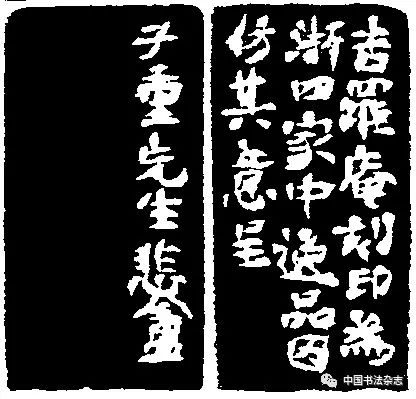 吉羅庵刻印為
浙四家中逸品因
仿其意呈
子重先生悲盦
中国书法杂志